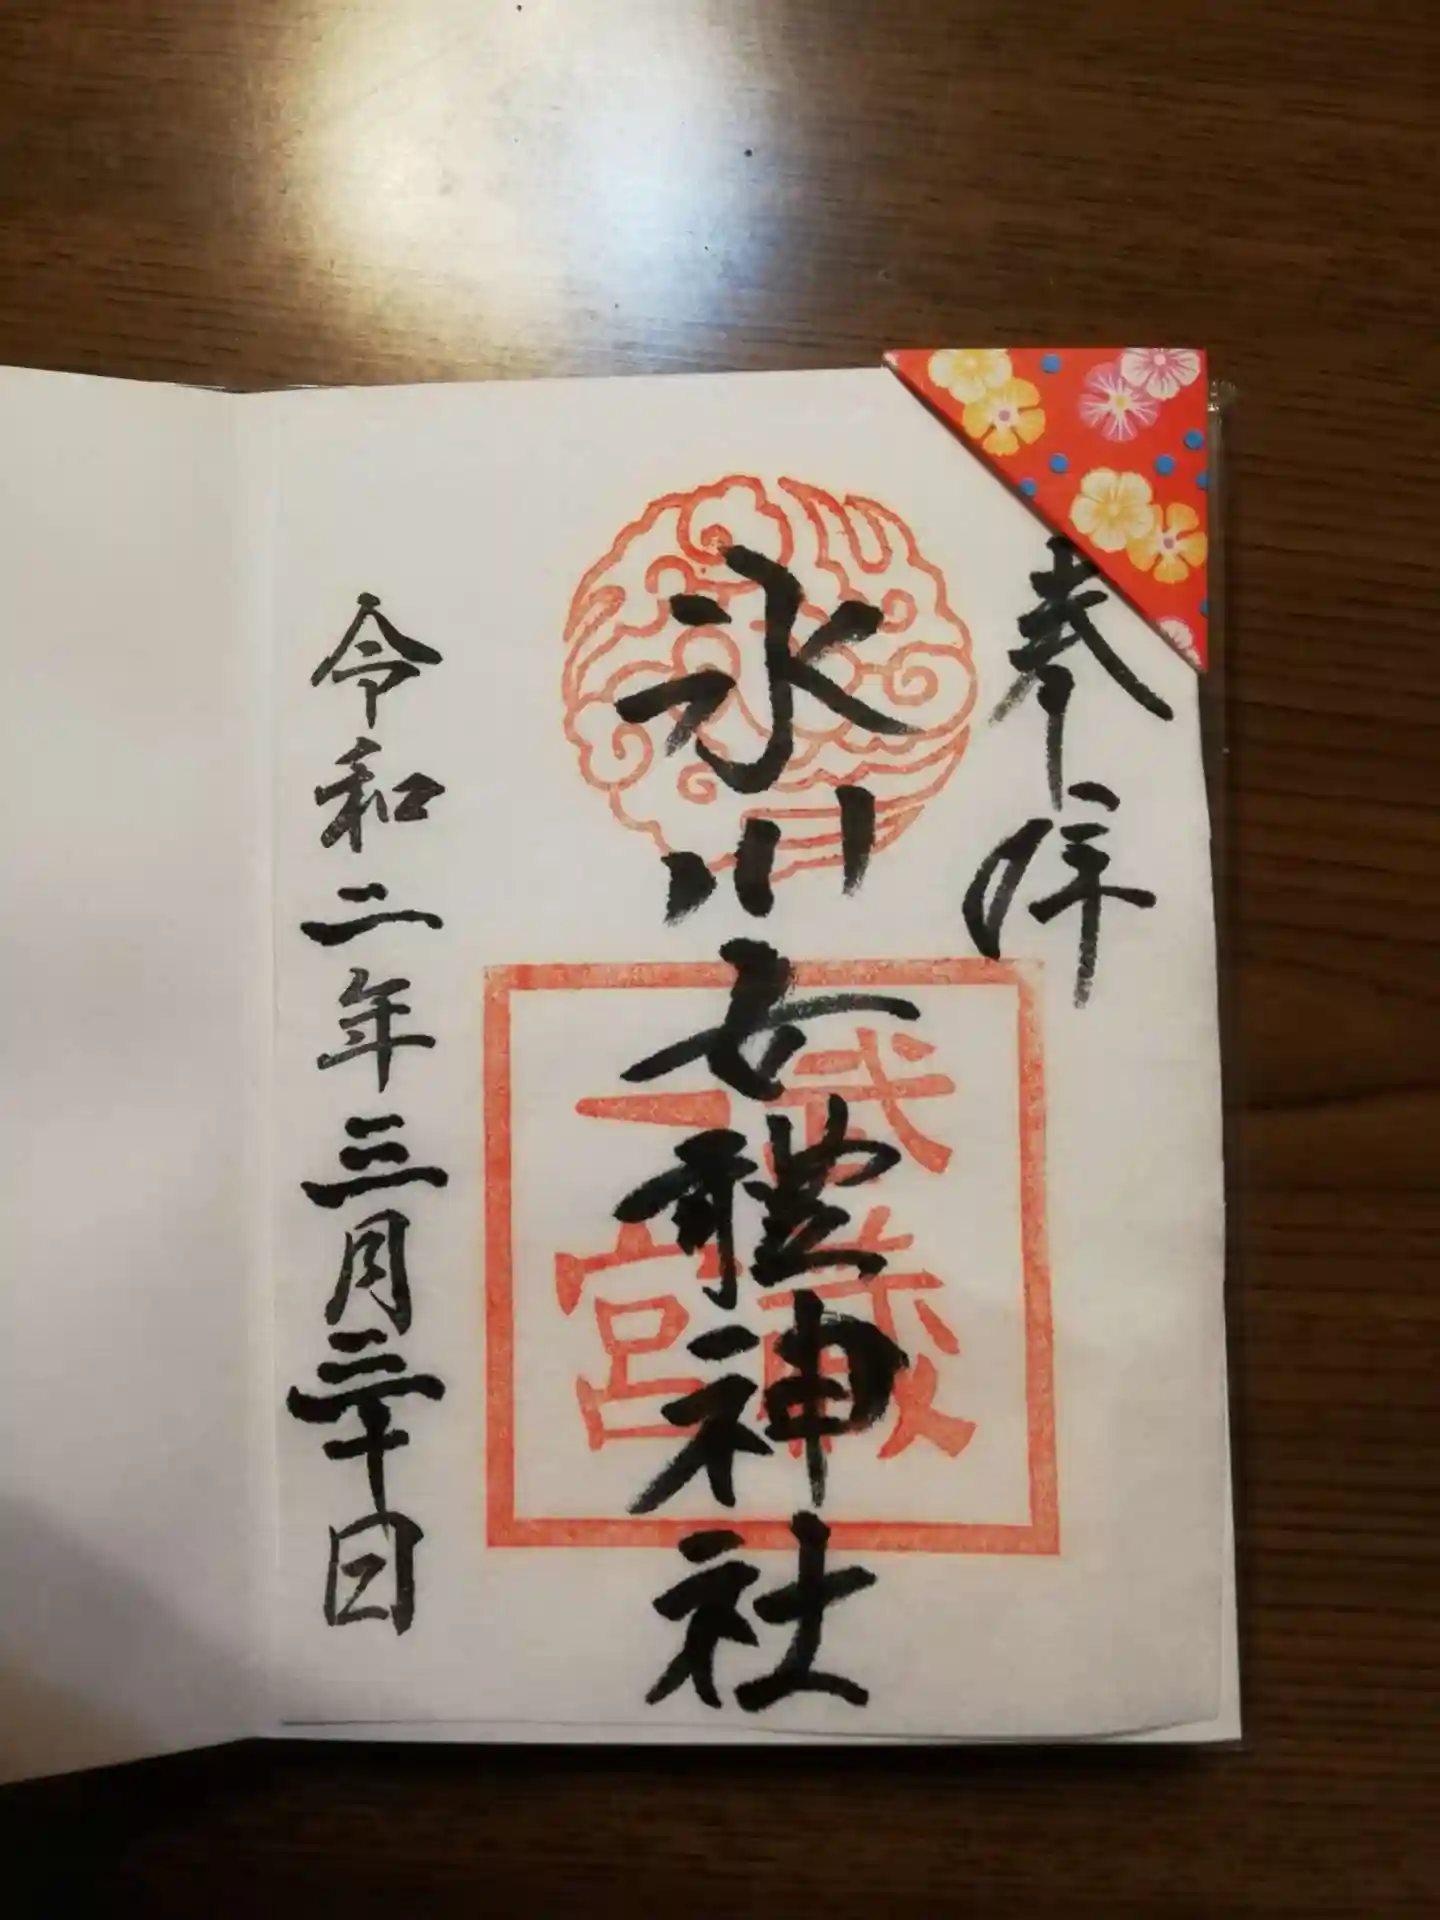 奉拝
氷川女體神社
武蔵
一宮
令和二年三月三十日